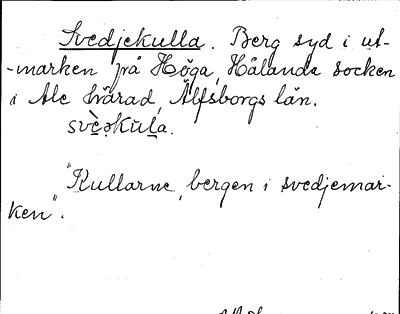 Svedjekulla. Berg syd i ut-
-marken på Höga, Hålanda socken
i Ale härad, Älfsborgs län.
"Kullarne, bergen i svedjemar-
ken".